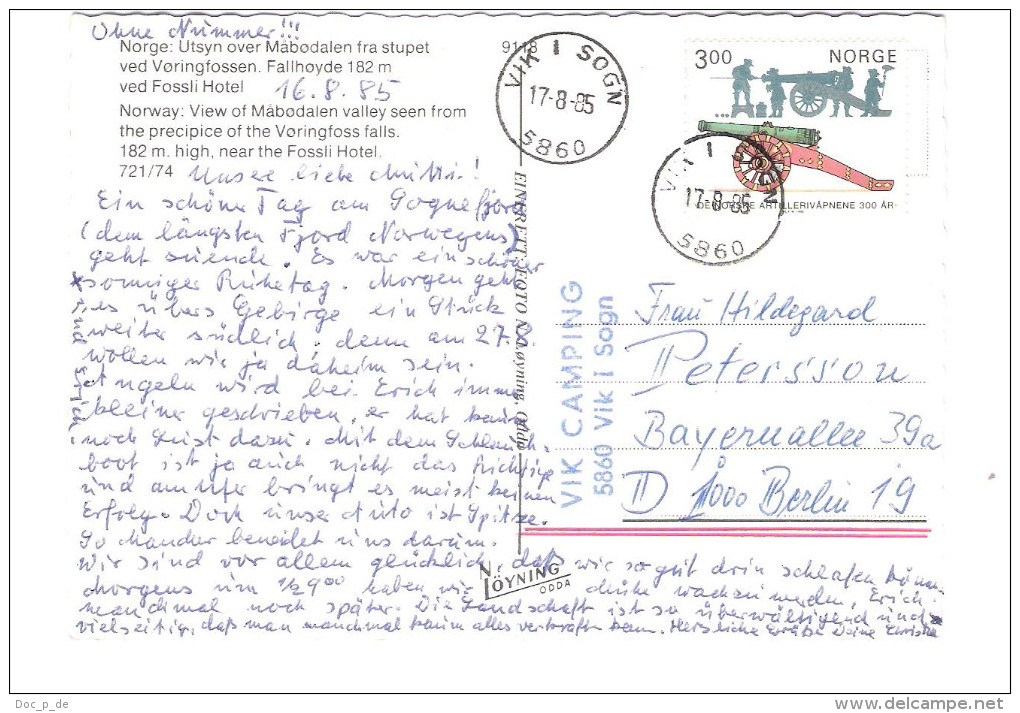 Ohne Nummer!!!
Norge: Utsyn over Måbødalen fra stupet
ved Vøringfossen. Fallhøyde 182 m
ved Fossli Hotel
16.8.85
Norway: View of Måbødalen valley seen from
the precipice of the Vøringfoss falls.
182 m. high, near the Fossli Hotel.
721/74
9118
Unsere liebe Mutti!
Ein schöner Tag am Sognefjord
(dem längsten Fjord Norwegens)
geht zuende. Es war ein schöner
sonniger Ruhetag. Morgen geht
es übers Gebirge ein Stück
weiter südlich, denn am 27.8.
wollen wir ja daheim sein.
Angeln wird bei Erich immer
kleiner geschrieben, er hat kaum
noch Lust dazu. Mit dem Schlauch-
boot ist ja auch nicht das Richtige
und am Ufer bringt es meist keinen
Erfolg. Doch unser Auto ist Spitze.
So Mancher beneidet uns darum.
Wir sind vor allem glücklich, daß wir so gut drin schlafen können.
Morgens um 1/2 9 00
manchmal noch später. Die Landschaft ist so überwältigend und
vielseitig, daß man manchmal kaum alles verkraften kann. Herzliche Grüße Deine Christa
und Erich
ENERETT: FOTO N. Løyning, Odda
NLØYNING
ODDA
VIK I SOGN
17-8-85
5860
3.00 NORGE
DE NORSKE ARTILLERIVÅPNENE 300 ÅR
VIK I SOGN
17-8-85
5860
VIK CAMPING
5860 Vik i Sogn
Frau Hildegard
Petersson
Bayernallee 39a
D 1000 Berlin 19
Doc_p_de
www.delcampe.net